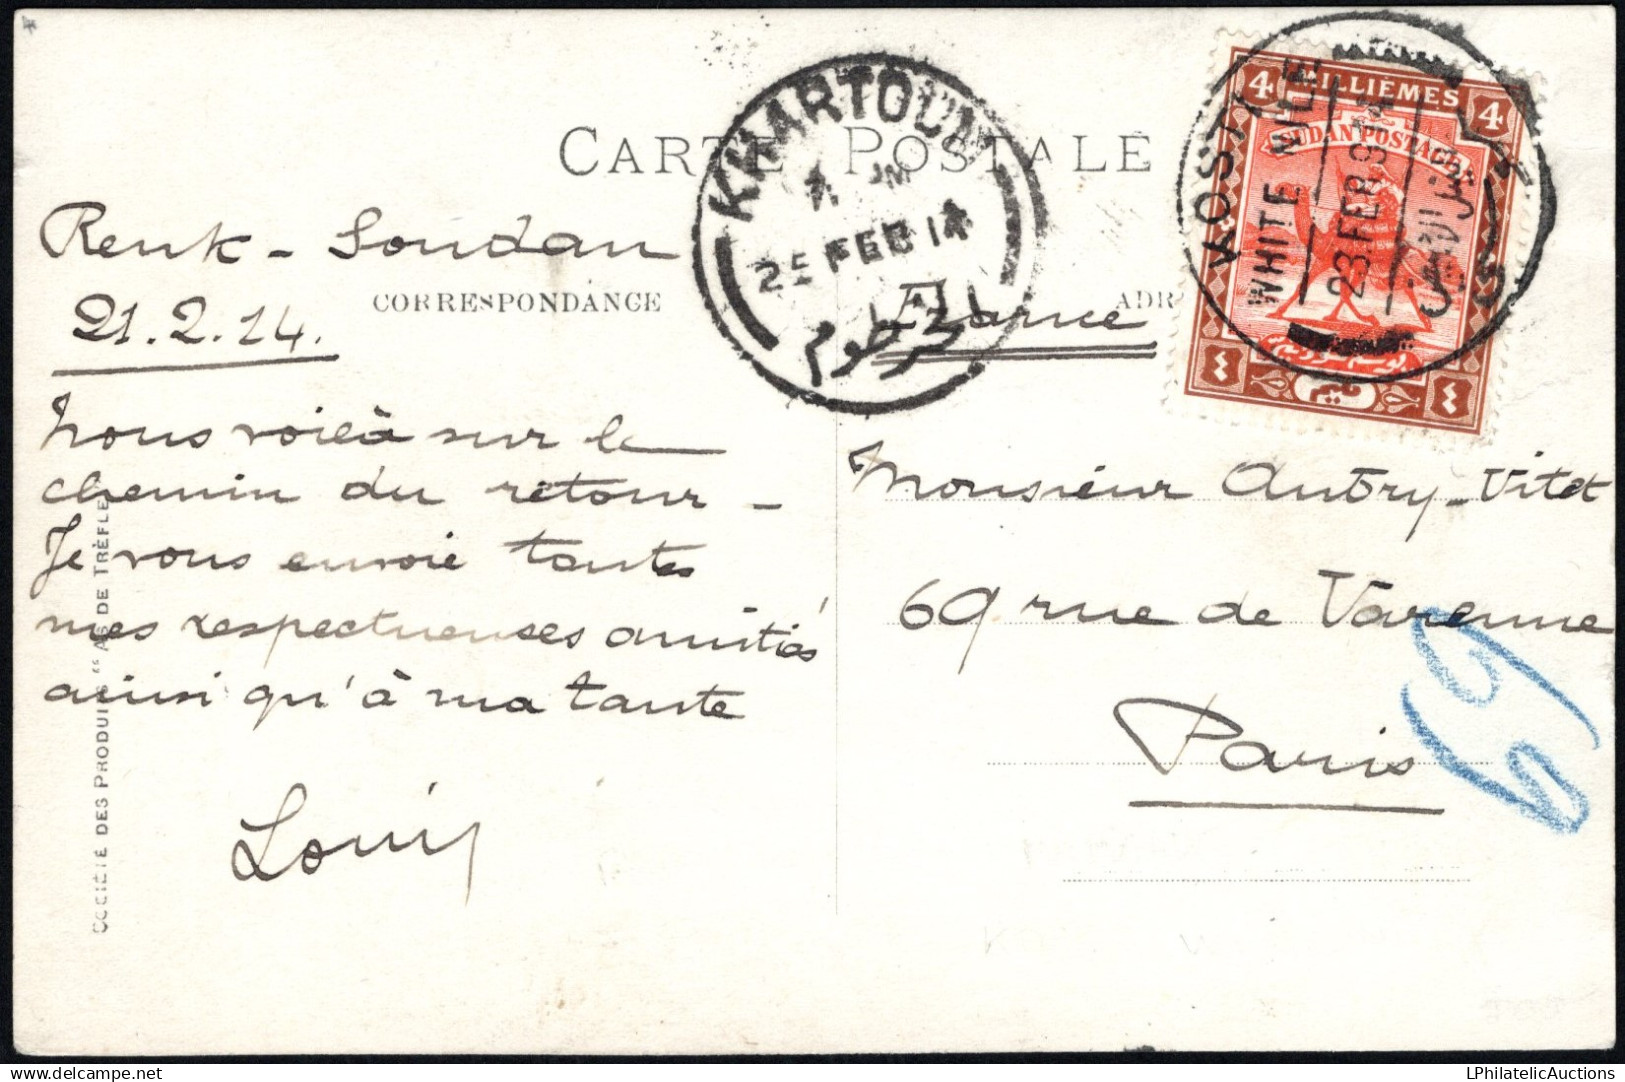 CARTE POSTALE
CORRESPONDANCE
ADR
Renk - Soudan
21.2.14.
Nous voilà sur le
chemin du retour -
Je vous envoie toutes
mes respectueuses amitiés
ainsi qu'à ma tante
Louis
SOCIÉTÉ DES PRODUITS "AS DE TRÈFLE"
KHARTOUM
PM
25 FEB 14
الخرطوم
4 MILLIÈMES 4
SUDAN POSTAGE
٤ ٤
KOSTI
WHITE NILE
23 FEB
النيل الابيض
كوستي
France
Monsieur Aubry-Vitet
69 rue de Varenne
Paris
69
LPhilatelicAuctions